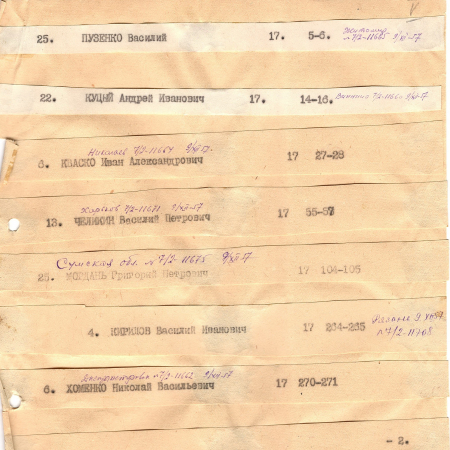 25. ПУЗЕНКО Василий 17. 5-6. Житомир
№7/2-11665 9/XI-57
22. КУЦЫЙ Андрей Иванович 17. 14-16. Винница 7/2-11660 9/XI-57
Николаев 7/2-11664 9/XI-57
6. КВАСКО Иван Александрович 17 27-28
Харьков 7/2-11671 9/XI-57
13. Василий Петрович 17 55-57
Сумская обл. №7/2-11675 9/XI-57
25. МОГДАНЬ Григорий Петрович 17 104-105
4. КИРИЛОВ Василий Иванович 17 264-265
№7/2-11708
№7/2-11662 9/XI-57
6. ХОМЕНКО Николай Васильевич 17 270-271
- 2.